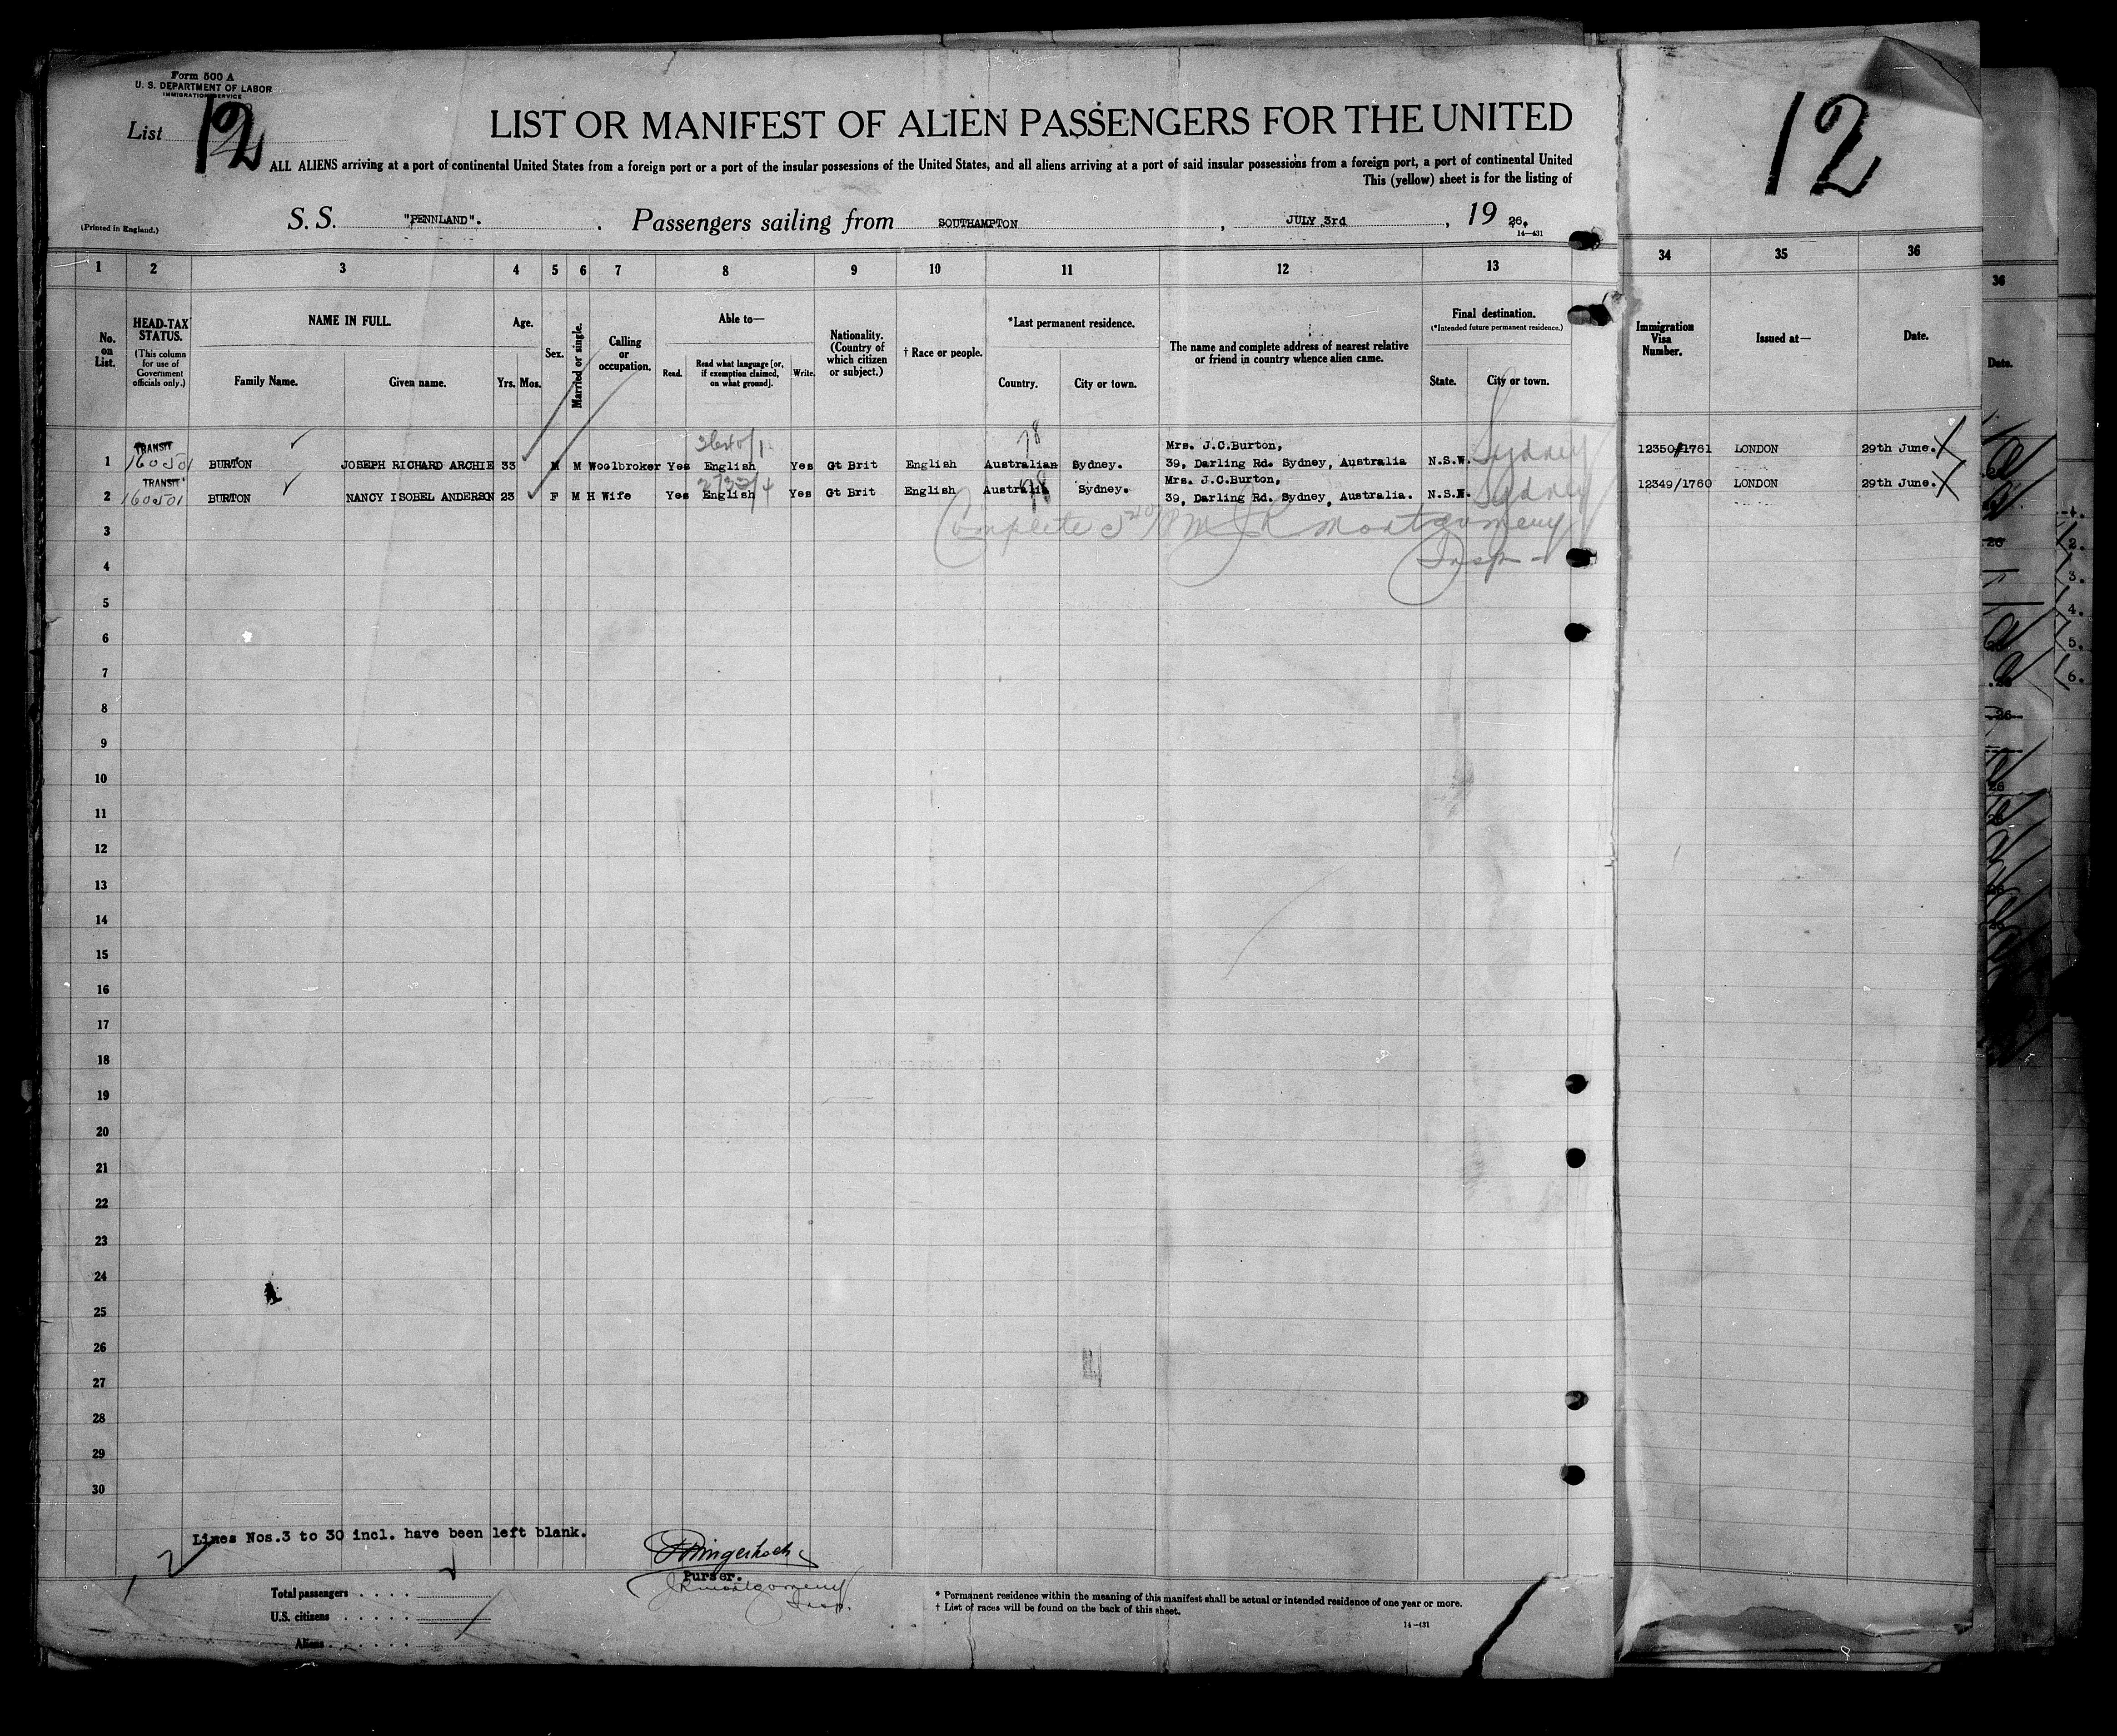 Form 500 A
U. S. DEPARTMENT OF LABOR
IMMIGRATION SERVICE
List 12
12
LIST OR MANIFEST OF ALIEN PASSENGERS FOR THE UNITED
ALL ALIENS arriving at a port of continental United States from a foreign port or a port of the insular possessions of the United States, and all aliens arriving at a port of said insular possessions from a foreign port, a port of continental United
This (yellow) sheet is for the listing of
(Printed in England.)
S. S. "PENNLAND". Passengers sailing from SOUTHAMPTON, JULY 3rd, 19 26.
14—431
1 2 3 4 5 6 7 8 9 10 11 12 13 34 35 36
36
No. on List.
HEAD-TAX STATUS. (This column for use of Government officials only.)
NAME IN FULL.
Family Name. Given name.
Age.
Yrs. Mos.
Sex.
Married or single.
Calling or occupation.
Able to—
Read. Read what language [or, if exemption claimed, on what ground]. Write.
Nationality. (Country of which citizen or subject.)
† Race or people.
*Last permanent residence.
Country. City or town.
The name and complete address of nearest relative or friend in country whence alien came.
Final destination.
(*Intended future permanent residence.)
State. City or town.
Immigration Visa Number.
Issued at—
Date.
Date.
TRANSIT 2640/1 78 Mrs. J.C.Burton,
1 160501 BURTON JOSEPH RICHARD ARCHIE 33 M M Woolbroker Yes English Yes Gt Brit English Australian Sydney. 39, Darling Rd. Sydney, Australia N.S.W. Sydney 12350/1761 LONDON 29th June.
TRANSIT 2733/4 78 Mrs. J.C.Burton,
2 160501 BURTON NANCY ISOBEL ANDERSON 23 F M H Wife Yes English Yes Gt Brit English Australia Sydney. 39, Darling Rd. Sydney, Australia. N.S.W. Sydney 12349/1760 LONDON 29th June.
3 Complete JR Montgomery
4 Insp
5
6
7
8
9
10
11
12
13
14
15
16
17
18
19
20
21
22
23
24
25
26
27
28
29
30
Lines Nos.3 to 30 incl. have been left blank.
2
Purser.
JR Montgomery
Insp.
Total passengers . . . .
U.S. citizens . . . . .
Aliens . . . . . .
* Permanent residence within the meaning of this manifest shall be actual or intended residence of one year or more.
† List of races will be found on the back of this sheet.
14—431